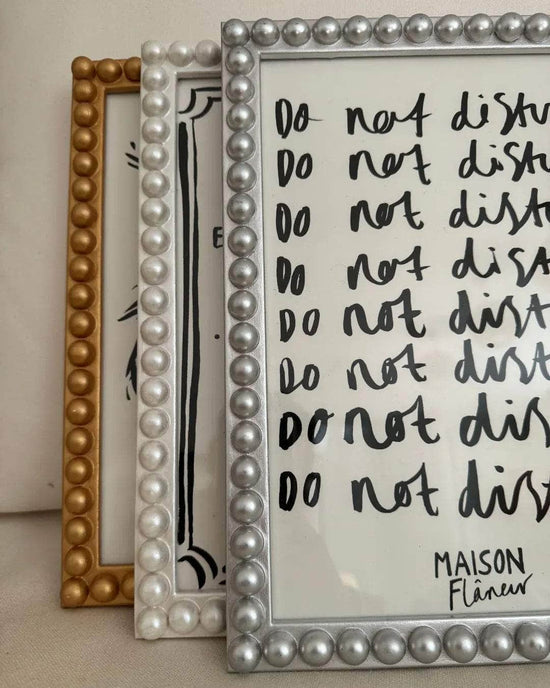 Do not distu
Do not distu
Do not distu
Do not dist
Do not dist
Do not dist
Do not dist
Do not dist
MAISON
Flâneur